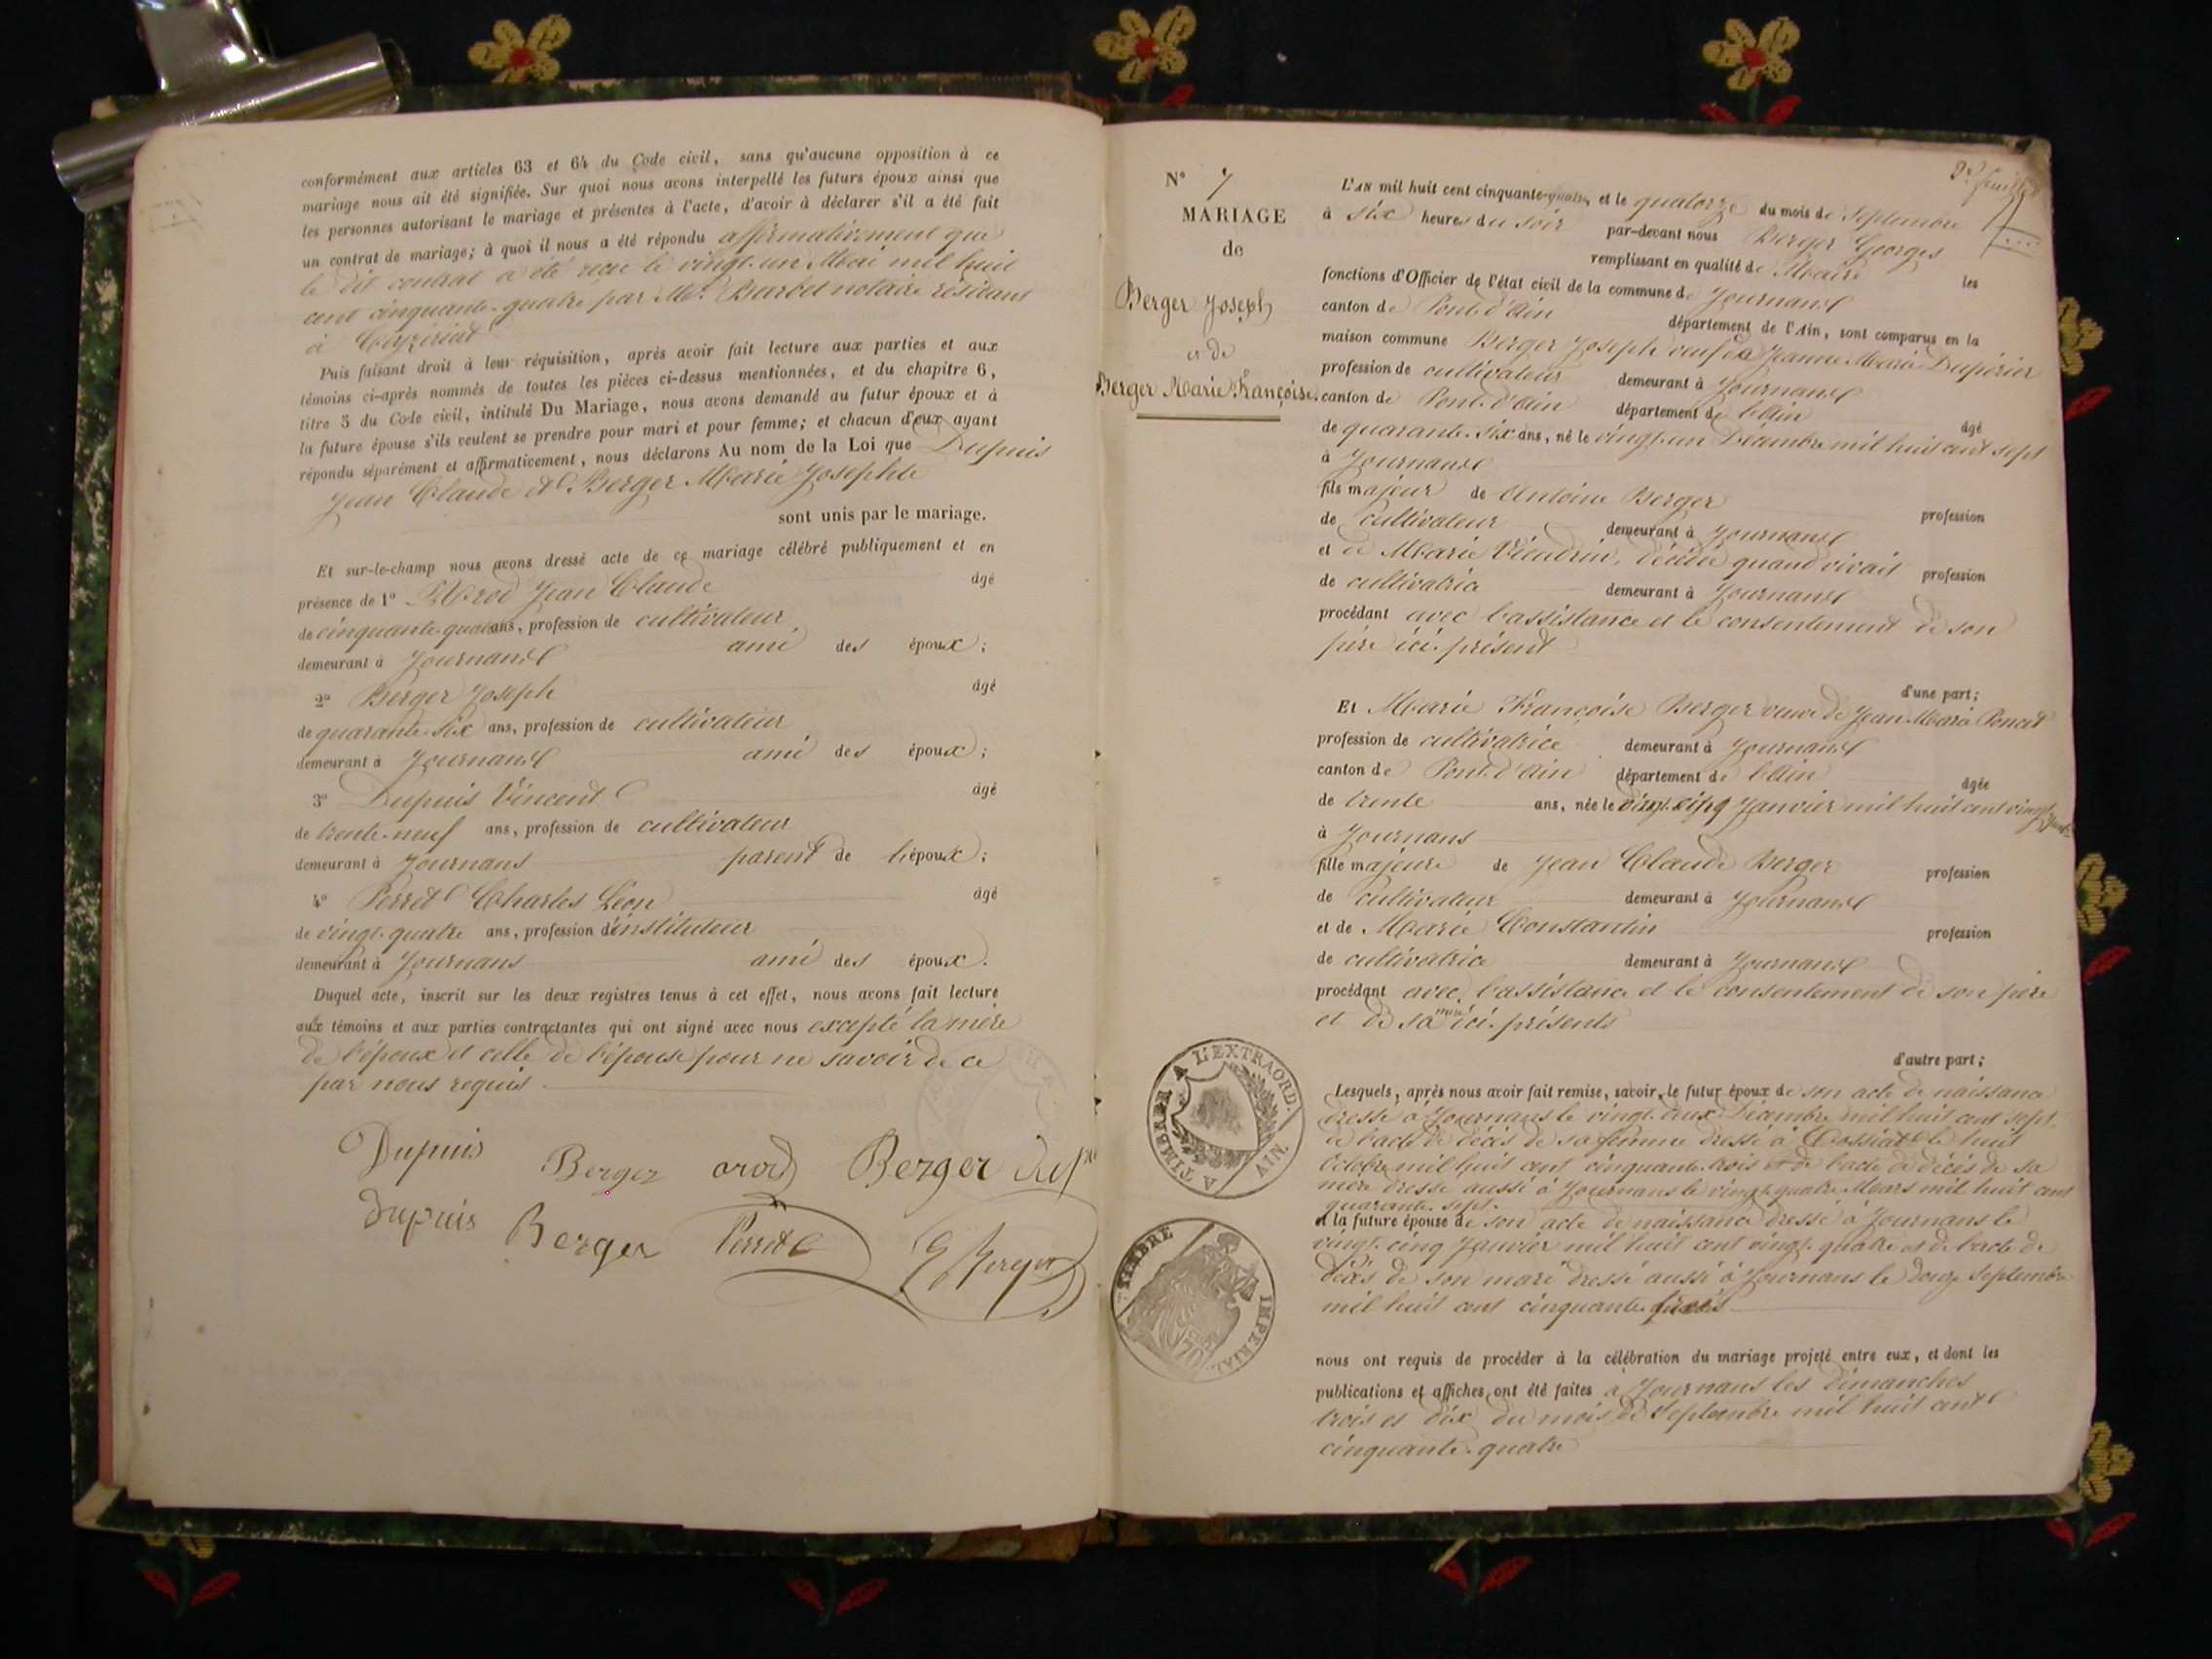 conformément aux articles 63 et 64 du Code civil, sans qu'aucune opposition à ce
mariage nous ait été signifiée. Sur quoi nous avons interpellé les futurs époux ainsi que
les personnes autorisant le mariage et présentes à l'acte, d'avoir à déclarer s'il a été fait
un contrat de mariage; à quoi il nous a été répondu affirmativement que
le dit contrat a été recu le vingt-un Mai mil huit
cent cinquante-quatre par Me. Barbet notaire résidant
à Ceyzériat
Puis faisant droit à leur réquisition, après avoir fait lecture aux parties et aux
témoins ci-après nommés de toutes les pièces ci-dessus mentionnées, et du chapitre 6,
titre 5 du Code civil, intitulé Du Mariage, nous avons demandé au futur époux et à
la future épouse s'ils veulent se prendre pour mari et pour femme; et chacun d'eux ayant
répondu séparément et affirmativement, nous déclarons Au nom de la Loi que Dupuis
Jean Claude et Berger Marie Josephte
sont unis par le mariage.
Et sur-le-champ nous avons dressé acte de ce mariage célébré publiquement et en
présence de 1º Jean Claude âgé
de cinquante-quatre ans, profession de cultivateur
demeurant à Journans ami des époux;
2º Berger Joseph âgé
de quarante-six ans, profession de cultivateur
demeurant à Journans ami des époux;
3º Dupuis Vincent âgé
de trente-neuf ans, profession de cultivateur
demeurant à Journans parent de l'époux;
4º Perret Charles Léon âgé
de vingt-quatre ans, profession d'instituteur
demeurant à Journans ami des époux.
Duquel acte, inscrit sur les deux registres tenus à cet effet, nous avons fait lecture
aux témoins et aux parties contractantes qui ont signé avec nous excepté la mère
de l'époux et celle de l'épouse pour ne savoir de ce
par nous requis
Dupuis Berger Berger
dupuis Berger Perret G Berger
Nº 7
MARIAGE
de
Berger Joseph
et de
Berger Marie Françoise.
A TIMBRER A L'EXTRAORD. AIN.
TIMBRE IMPERIAL
L'AN mil huit cent cinquante-quatre, et le quatorze du mois de Septembre
à six heures du soir par-devant nous Berger Georges
remplissant en qualité de Maire les
fonctions d'Officier de l'état civil de la commune de Journans
canton de Pont-d'Ain département de l'Ain, sont comparus en la
maison commune Berger Joseph veuf de Jeanne Marie Dupérier
profession de cultivateur demeurant à Journans
canton de Pont-d'Ain département de l'Ain âgé
de quarante-six ans, né le vingt-un Décembre mil huit cent sept
à Journans
fils majeur de Antoine Berger profession
de cultivateur demeurant à Journans
et de Marie Viendrin, décédée quand vivait profession
de cultivatrice demeurant à Journans
procédant avec l'assistance et le consentement de son
père ici présent
d'une part;
Et Marie Françoise Berger veuve de Jean Marie Poncet
profession de cultivatrice demeurant à Journans
canton de Pont-d'Ain département de l'Ain âgée
de trente ans, née le vingt-cinq Janvier mil huit cent vingt quatre
à Journans
fille majeure de Jean Claude Berger profession
de cultivateur demeurant à Journans
et de Marie Constantin profession
de cultivatrice demeurant à Journans
procédant avec l'assistance et le consentement de son père
et de sa mère ici présents
d'autre part;
Lesquels, après nous avoir fait remise, savoir, le futur époux de son acte de naissance
dressé à Journans le vingt-deux Décembre mil huit cent sept,
de l'acte de décès de sa femme dressé à Tossiat le huit
Octobre mil huit cent cinquante-trois et de l'acte de décès de sa
mère dressé aussi à Journans le vingt-quatre Mars mil huit cent
quarante-sept.
et la future épouse de son acte de naissance dressé à Journans le
vingt-cinq Janvier mil huit cent vingt-quatre et de l'acte de
décès de son mari dressé aussi à Journans le douze Septembre
mil huit cent cinquante-trois
nous ont requis de procéder à la célébration du mariage projeté entre eux, et dont les
publications et affiches ont été faites à Journans les dimanches
trois et dix du mois de Septembre mil huit cent
cinquante-quatre